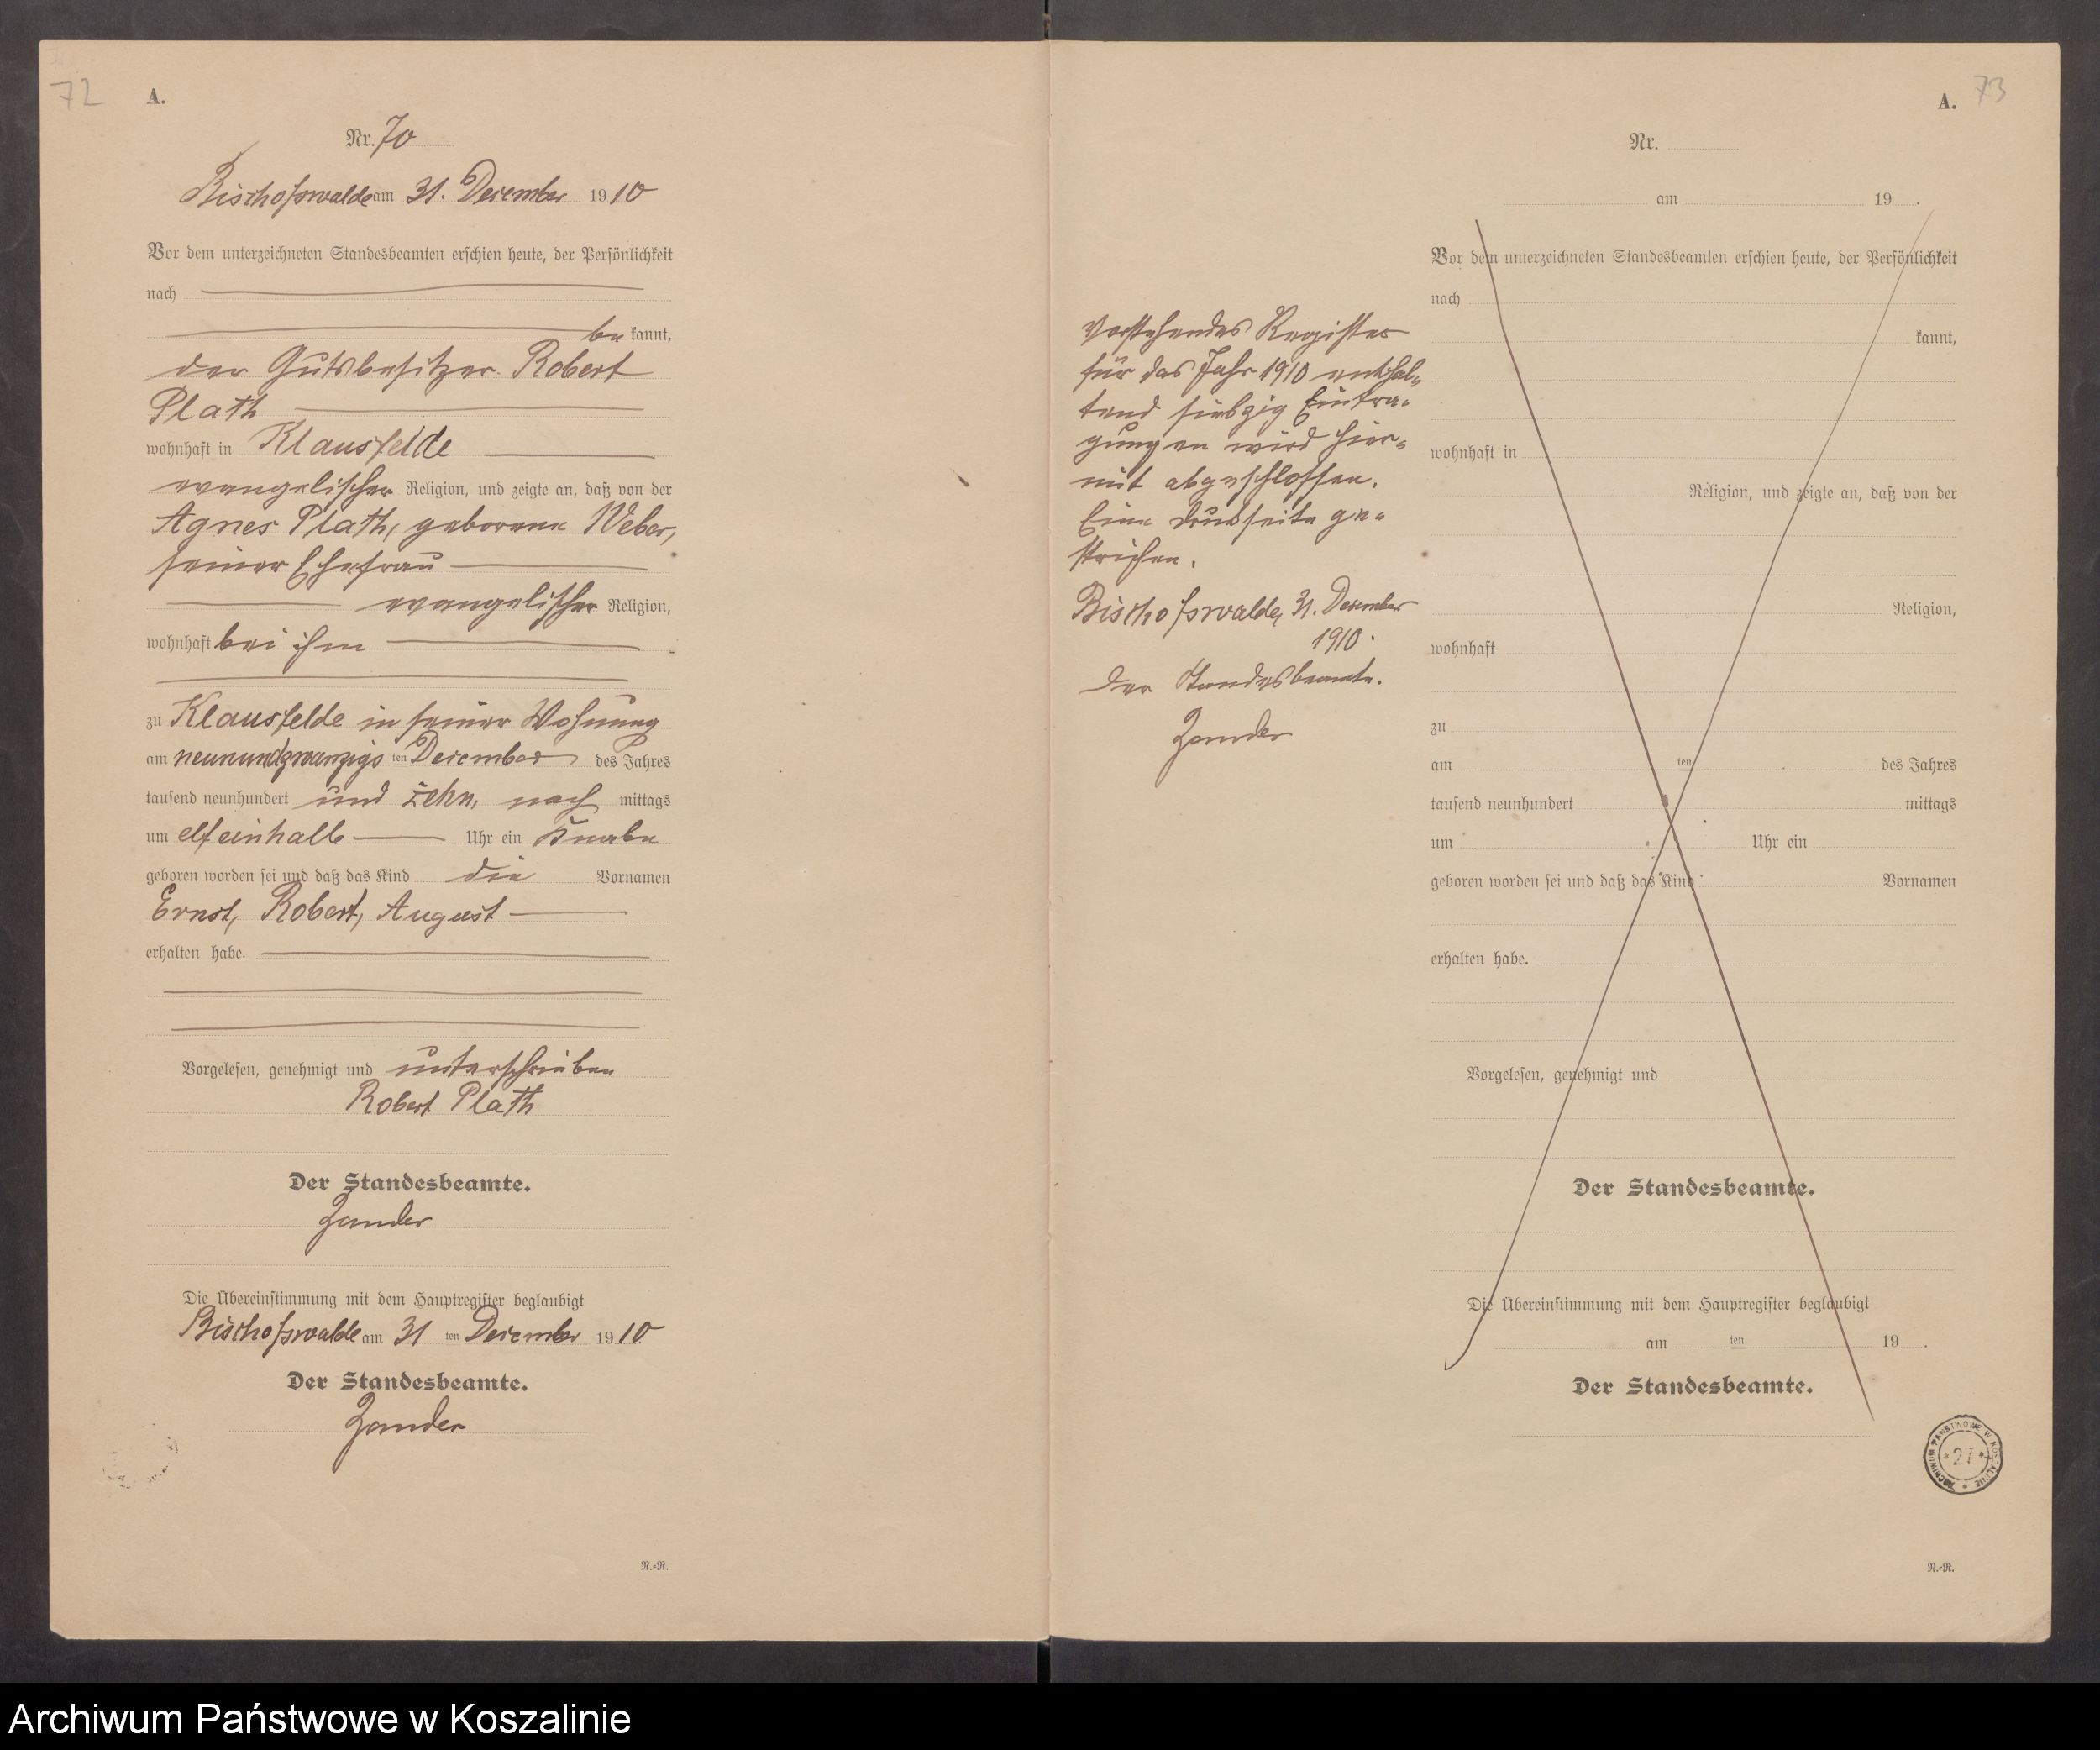 72
A.
Nr. 70
Bischofswalde am 31. Dezember 1910
Vor dem unterzeichneten Standesbeamten erschien heute, der Persönlichkeit
nach
be kannt,
der Gutsbesitzer Robert
Plath
wohnhaft in Klausfelde
evangelischer Religion, und zeigte an, daß von der
Agnes Plath, geborene Weber,
seiner Ehefrau
evangelischer Religion,
wohnhaft bei ihm
zu Klausfelde in seiner Wohnung
am neunundzwanzigs ten Dezember des Jahres
tausend neunhundert und zehn, nach mittags
um elfeinhalb Uhr ein Knabe
geboren worden sei und daß das Kind die Vornamen
Ernst, Robert, August
erhalten habe.
Vorgelesen, genehmigt und unterschrieben
Robert Plath
Der Standesbeamte.
Zander
Die Übereinstimmung mit dem Hauptregister beglaubigt
Bischofswalde am 31 ten Dezember 1910
Der Standesbeamte.
Zander
R.=R.
Vorstehendes Register
für das Jahr 1910 enthal=
tend siebzig Eintra=
gungen wird hier=
mit abgeschlossen.
Eine Druckseite ge=
strichen.
Bischofswalde, 31. Dezember
1910.
Der Standesbeamte.
Zander
73
A.
Nr.
am 19 .
Vor dem unterzeichneten Standesbeamten erschien heute, der Persönlichkeit
nach
kannt,
wohnhaft in
Religion, und zeigte an, daß von der
Religion,
wohnhaft
zu
am ten des Jahres
tausend neunhundert mittags
um Uhr ein
geboren worden sei und daß das Kind Vornamen
erhalten habe.
Vorgelesen, genehmigt und
Der Standesbeamte.
Die Übereinstimmung mit dem Hauptregister beglaubigt
am ten 19 .
Der Standesbeamte.
ARCHIWUM PAŃSTWOWE W KOSZALINIE
* 27 *
R.=R.
Archiwum Państwowe w Koszalinie